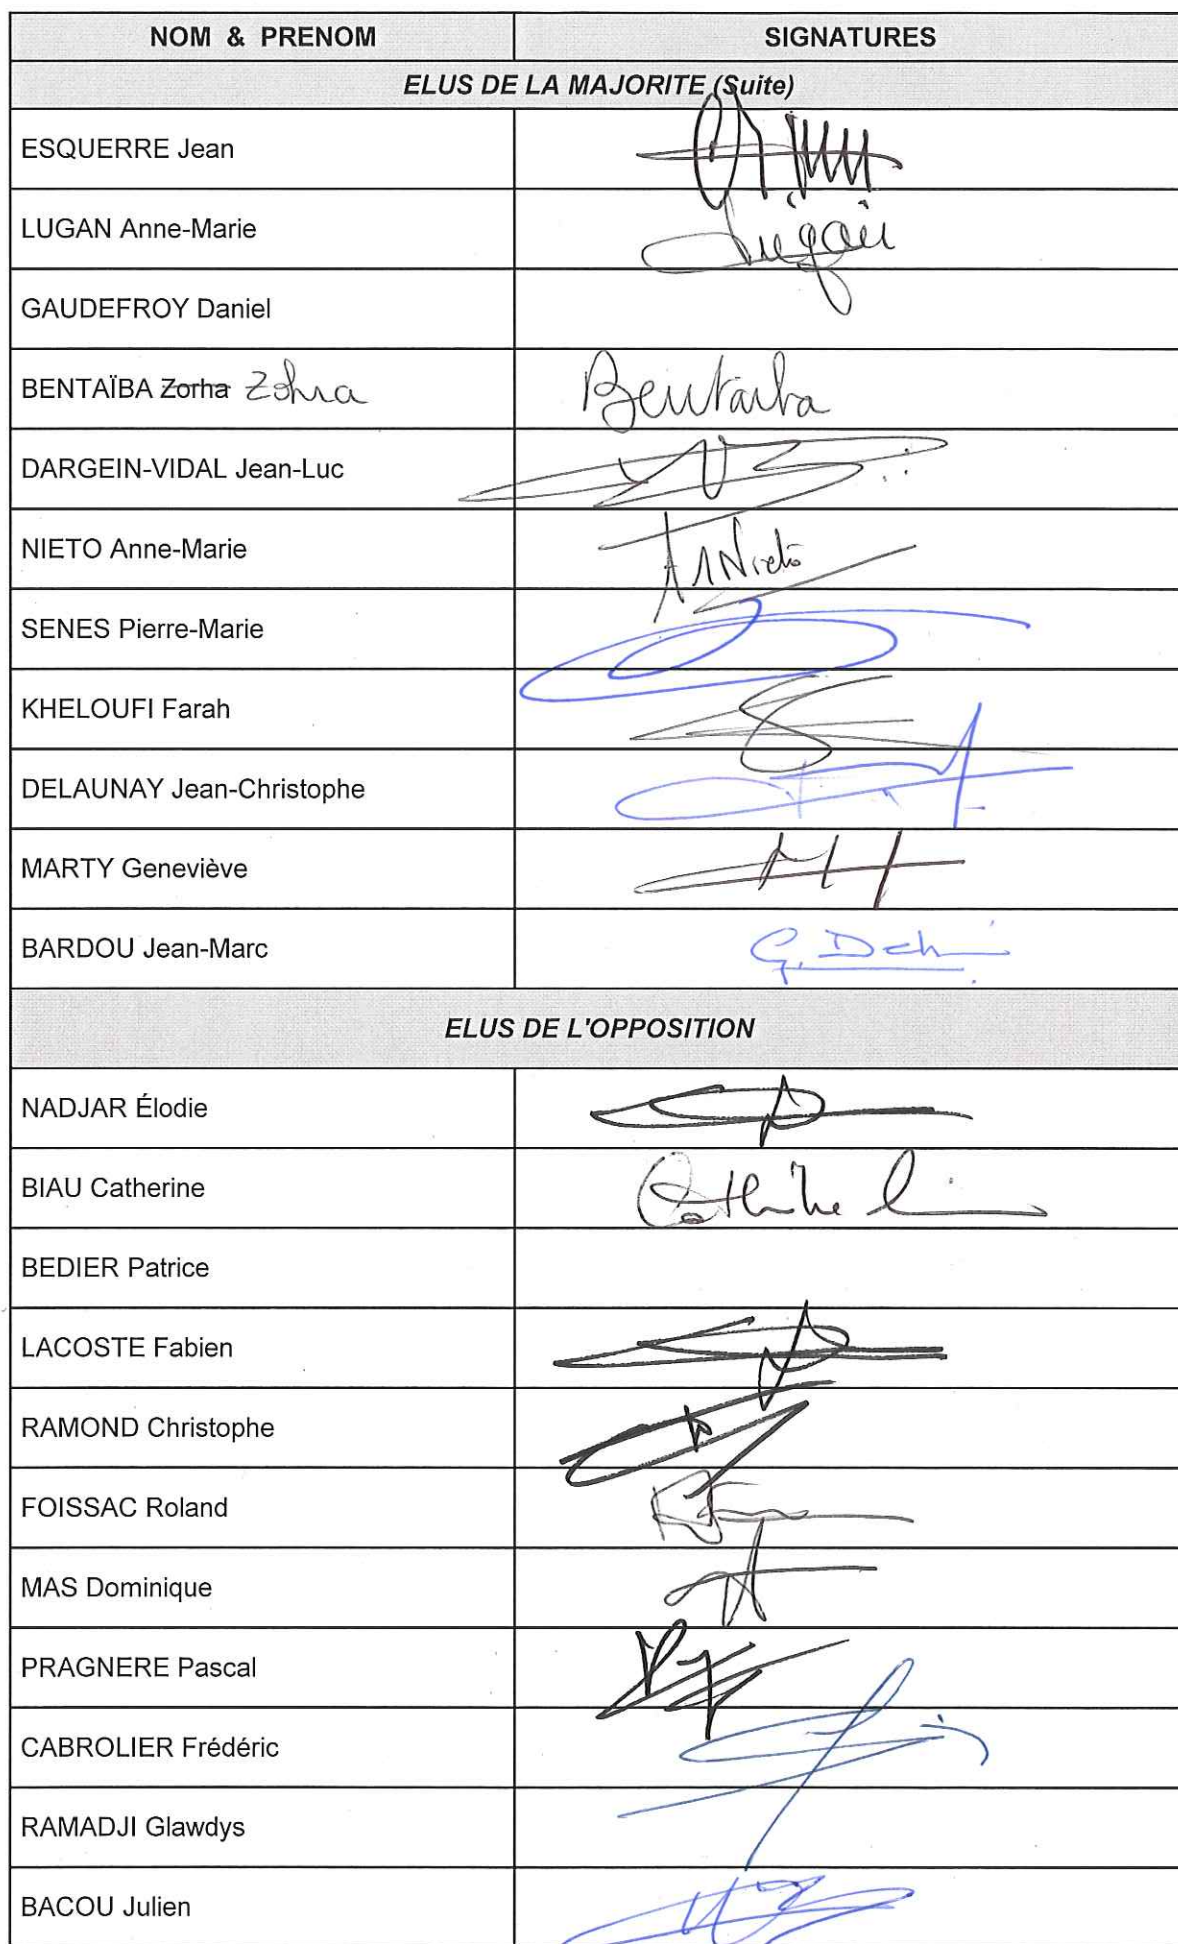 NOM & PRENOM SIGNATURES
ELUS DE LA MAJORITE (Suite)
ESQUERRE Jean
LUGAN Anne-Marie Lugan
GAUDEFROY Daniel
BENTAÏBA Zorha Zohra Bentaiba
DARGEIN-VIDAL Jean-Luc
NIETO Anne-Marie AMNieto
SENES Pierre-Marie
KHELOUFI Farah
DELAUNAY Jean-Christophe
MARTY Geneviève
BARDOU Jean-Marc
ELUS DE L'OPPOSITION
NADJAR Élodie
BIAU Catherine Catherine
BEDIER Patrice
LACOSTE Fabien
RAMOND Christophe
FOISSAC Roland
MAS Dominique
PRAGNERE Pascal
CABROLIER Frédéric
RAMADJI Glawdys
BACOU Julien